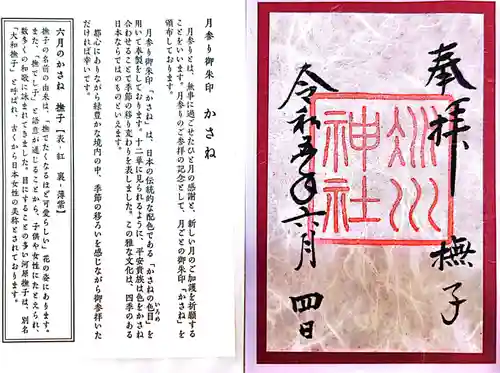 月参り御朱印　かさね
月参りとは、無事に過ごせたひと月の感謝と、新しい月のご加護を祈願する
ことをいいます。月参りのご参拝の記念として、月ごとの御朱印「かさね」を
頒布しております。
月参り御朱印「かさね」は、日本の伝統的な配色である「かさねの色目」を
いろめ
用いて奉製をしております。十二単に見られるように、平安貴族は色をかさね
合わせることで季節の移り変わりを表しました。この雅な文化は、四季のある
日本ならではのものといえます。
都心にありながら緑豊かな境内の中、季節の移ろいを感じながら御参拝いた
だければ幸いです。
六月のかさね　撫子【表-紅　裏-薄紫】
撫子の名前の由来は、「撫でたくなるほど可愛らしい」花の姿にあります。
また、「撫でし子」と語意が通じることから、子供や女性にたとえられ、
数多くの和歌に詠まれてきました。目にすることの多い河原撫子は、別名
「大和撫子」と呼ばれ、古くから日本女性の美称とされております。
奉拝　撫子
神社
令和五年六月　四日